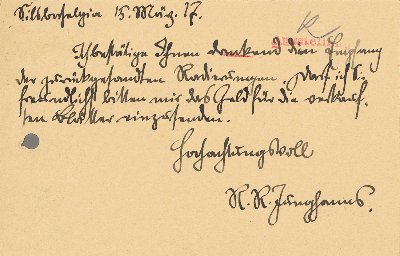 15. März. 17.
Ich bestätige Ihnen dankend den Empfang
der zurückgesandten Radierungen. Darf ich Sie
freundlichst bitten mir das Geld für die verkauf-
ten Blätter einzusenden.
Hochachtungsvoll
R. R. Junghanns.